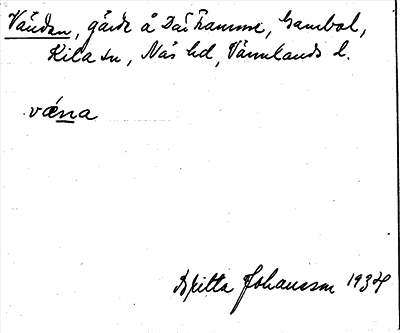 Vändan, gärde å Dashammer, Gambol,
Kila sn, Näs hd, Värmlands l.
væna
Britta Johansson 1934